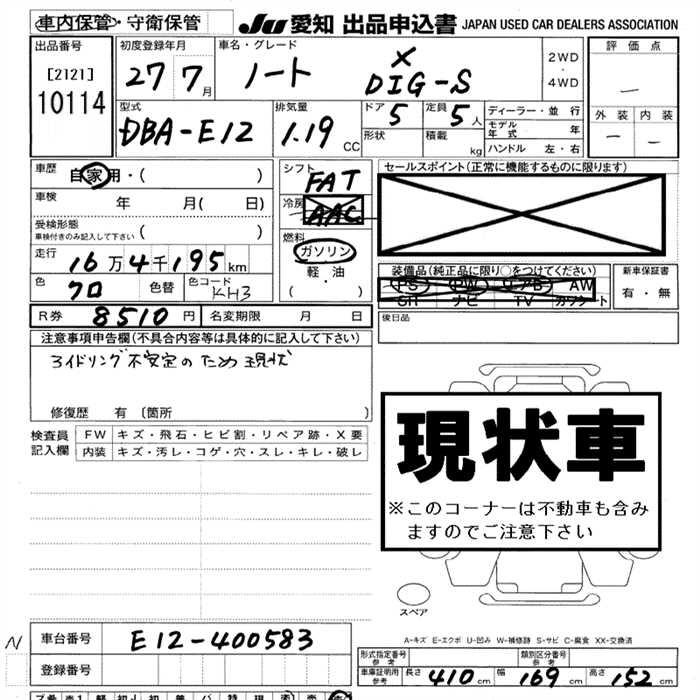 車内保管・守衛保管 JU 愛知 出品申込書 JAPAN USED CAR DEALERS ASSOCIATION
出品番号 [2121] 10114
初度登録年月 27 7月
車名・グレード ノート X DIG-S
2WD・4WD
評価点 —
外装 内装
— —
型式 DBA-E12
排気量 1.19 CC
ドア 5 定員 5人
形状 積載 kg
ディーラー・並行
モデル年式 年
ハンドル 左・右
車歴 自家用・( )
車検 年 月( 日)
受検形態 車検付きのみ記入して下さい ( )
走行 16万4千195km
色 クロ 色替 色コード KH3
R券 8510円 名変期限 月 日
シフト FAT
冷房 AAC
燃料 ガソリン
軽・油
・( )
セールスポイント(正常に機能するものに限ります)
装備品(純正品に限り○をつけてください)
PS PW エアB AW
SR ナビ TV カワシート
新車保証書
有・無
後日品
注意事項申告欄(不具合内容等は具体的に記入して下さい)
アイドリング不安定のため現状
修復歴 有〔箇所 〕
検査員記入欄
FW キズ・飛石・ヒビ割・リペア跡・X要
内装 キズ・汚レ・コゲ・穴・スレ・キレ・破レ
現状車
※このコーナーは不動車も含み
ますのでご注意下さい
スペア
A-キズ E-エクボ U-凹み W-補修跡 S-サビ C-腐食 XX-交換済
N 車台番号 E12-400583
登録番号
形式指定番号 参考 類別区分番号 参考
車庫証明用 参考 長さ 410cm 幅 169cm 高さ 152cm